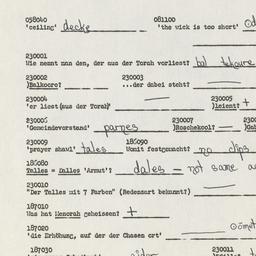 058040 081100
'ceiling' decke 'the wick is too short'
230001
Wie nennt man den, der aus der Torah vorliest? bal tekoure
230002 230003
)Balkoore? ...der dabei steht?
230004 230005
'er liest (aus der Torah)' )leient? +
230006 230007
'Gemeindevorstand' parnes )Roschekool? —
230009 186090
'prayer shawl' tales Womit festgemacht? no clips
186080
Talles = Dalles 'Armut'? dales = not same
230010
"Der Talles mit 7 Farben" (Redensart bekannt?)
187010
Was hat Menorah geheissen? +
187020
'die Erhöhung, auf der der Chasen ort'
187030 230011